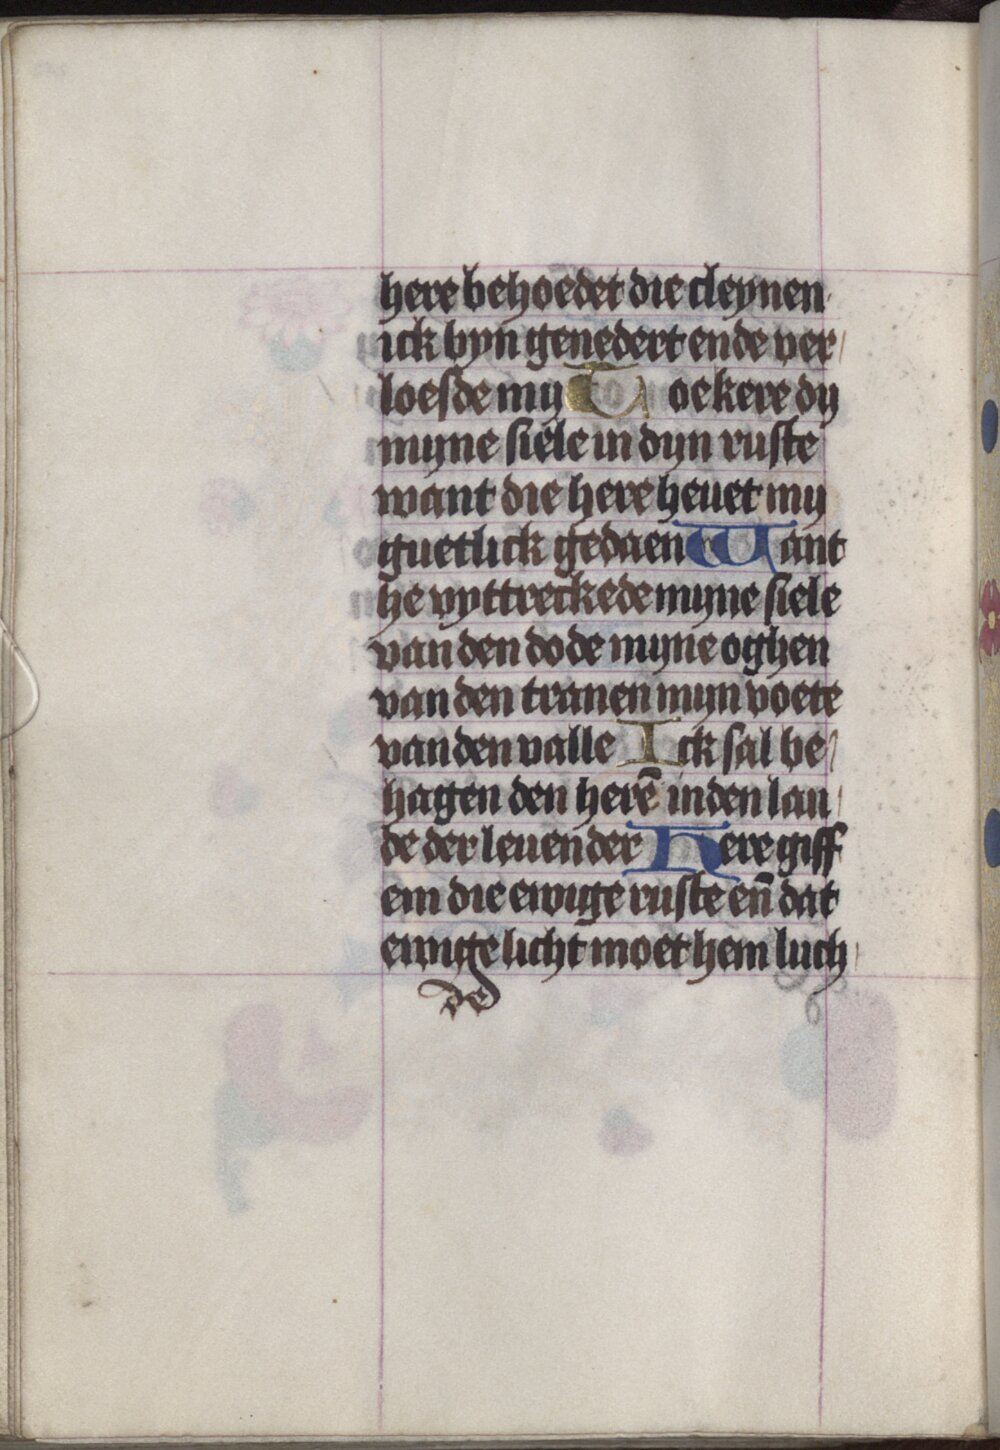 here behoedet die cleynen
ick byn genedert ende ver/
loesde my Toekere dy
myne siele in dyn ruste
want die here heuet my
guetlick gedaen Want
he vyttreckede myne siele
van den dode myne oghen
van den tranen myn voete
van den valle Ick sal be/
hagen den herē in den lan/
de der leuender Here giff
em die ewige ruste en̄ dat
ewige licht moet hem luch/
de